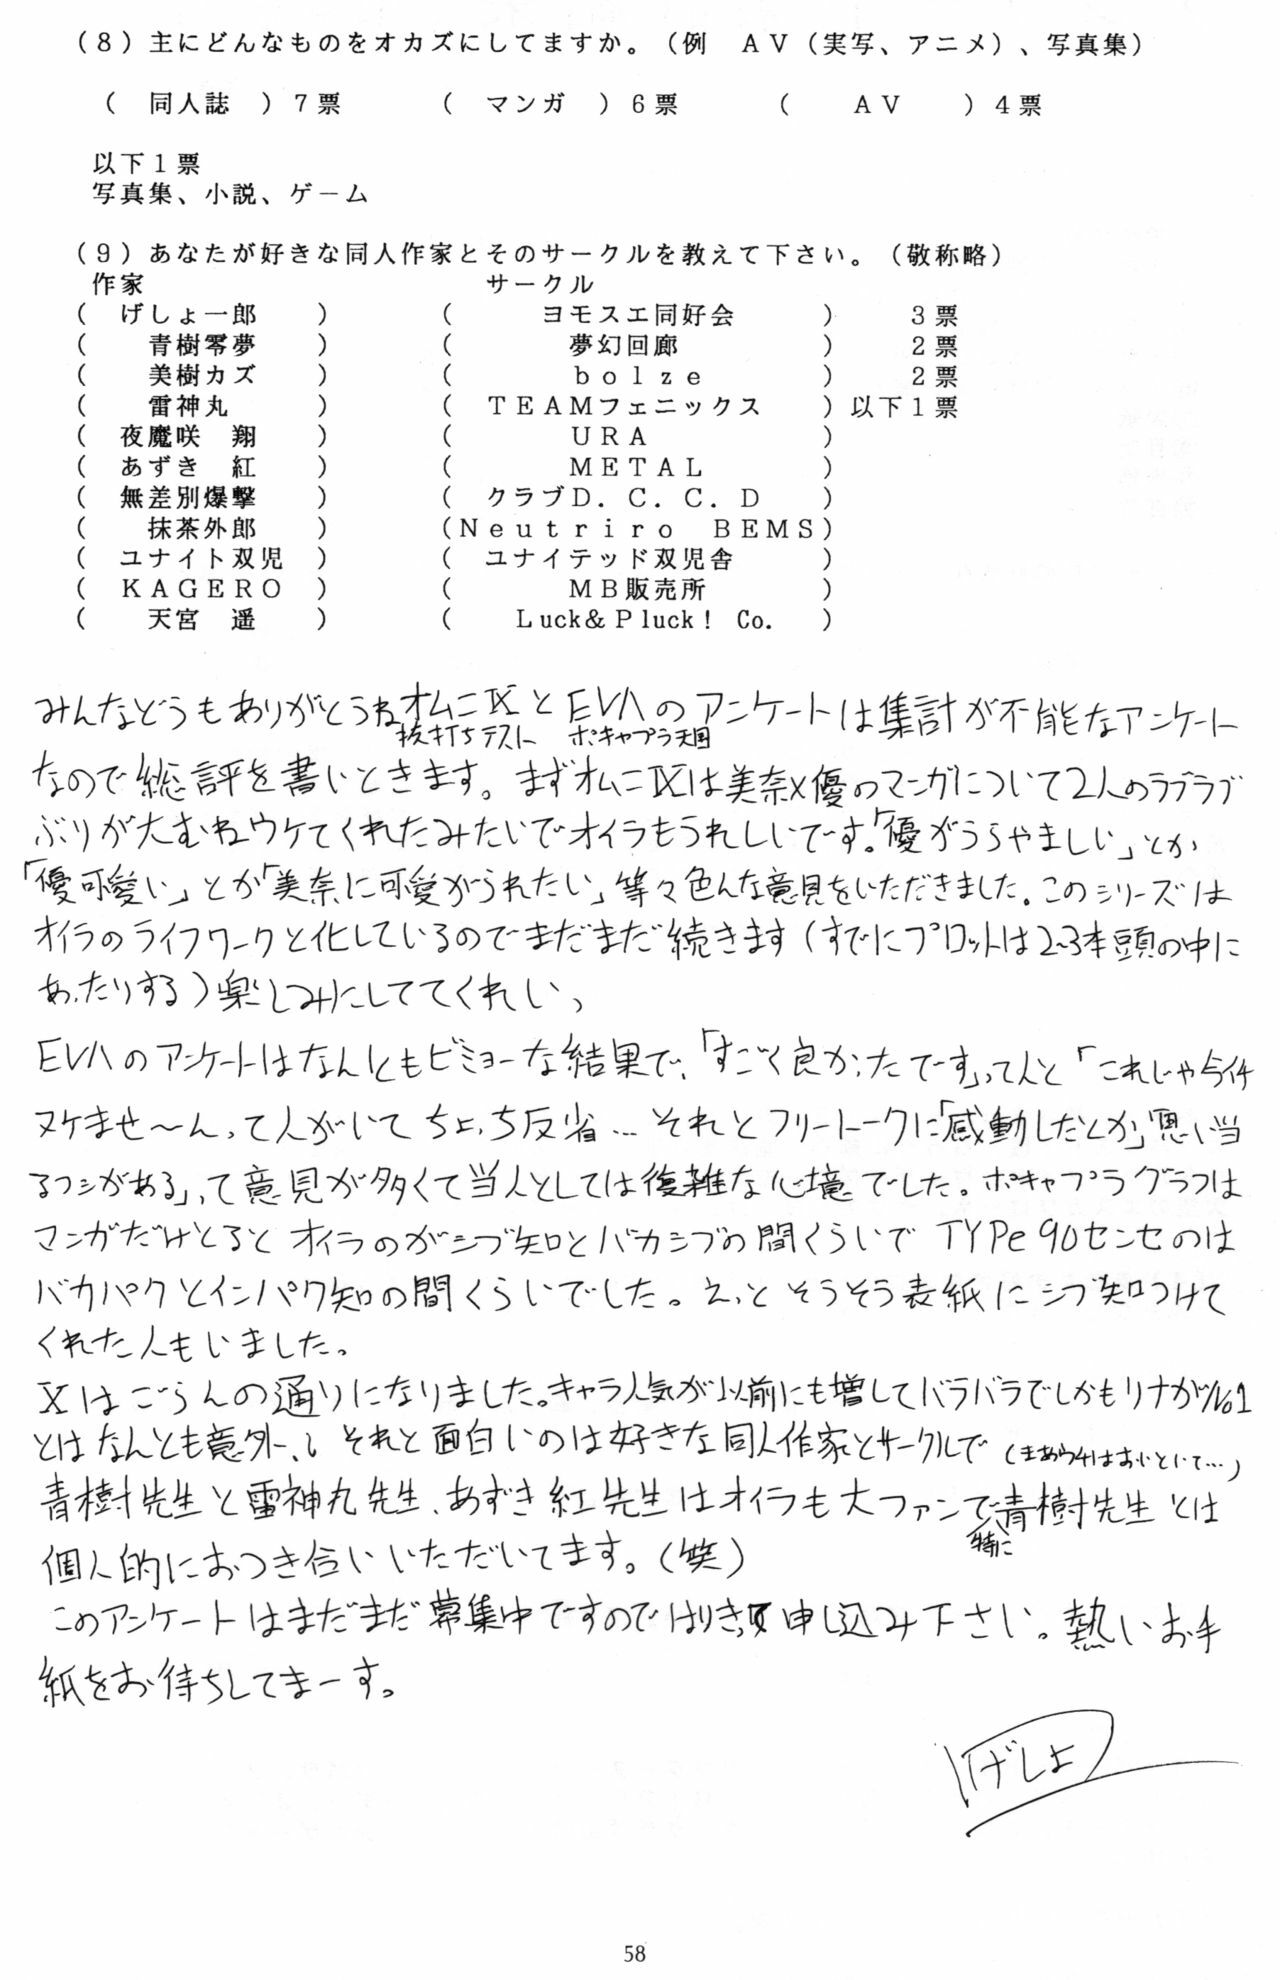 (8)主にどんなものをオカズにしてますか。(例　AV(実写、アニメ)、写真集)
(　同人誌　)7票　(　マンガ　)6票　(　AV　)4票
以下1票
写真集、小説、ゲーム
(9)あなたが好きな同人作家とそのサークルを教えて下さい。(敬称略)
作家　サークル
(　げしょ一郎　)　(　ヨモスエ同好会　)　3票
(　青樹零夢　)　(　夢幻回廊　)　2票
(　美樹カズ　)　(　bolze　)　2票
(　雷神丸　)　(　TEAMフェニックス　)　以下1票
(　夜魔咲　翔　)　(　URA　)
(　あずき　紅　)　(　METAL　)
(　無差別爆撃　)　(　クラブD.C.C.D　)
(　抹茶外郎　)　(Neutriro　BEMS)
(　ユナイト双児　)　(　ユナイテッド双児舎　)
(　KAGERO　)　(　MB販売所　)
(　天宮　遥　)　(　Luck&Pluck! Co.　)
みんなどうもありがとうねオムニⅨとEVAのアンケートは集計が不能なアンケート
抜打ちテスト　ボキャブラ天国
なので総評を書いときます。まずオムニⅨは美奈×優のマンガについて2人のラブラブ
ぶりが大むねウケてくれたみたいでオイラもうれしいです。「優がうらやましい」とか
「優可愛い」とか「美奈に可愛がられたい」等々色んな意見をいただきました。このシリーズは
オイラのライフワークと化しているのでまだまだ続きます(すでにプロットは2~3本頭の中に
あったりする)楽しみにしててくれい、
EVAのアンケートはなんともビミョーな結果で、「すごく良かったです」って人と「これじゃ今イチ
ヌケませ〜ん、って人がいてちょっち反省…それとフリートークに「感動したとか」「思い当
るフシがある」って意見が多くて当人としては複雑な心境でした。ボキャブラグラフは
マンガだけとるとオイラのがシブ知とバカシブの間くらいでTYPe90センセのは
バカパクとインパク知の間くらいでした。えっとそうそう表紙にシブ知つけて
くれた人もいました。
Ⅹはごらんの通りになりました。キャラ人気が以前にも増してバラバラでしかもリナがNo1
とはなんとも意外、、それと面白いのは好きな同人作家とサークルで(まあウチはおいといて…)
青樹先生と雷神丸先生、あずき紅先生はオイラも大ファンで青樹先生とは
特に
個人的におつき合いいただいてます。(笑)
このアンケートはまだまだ募集中ですのではりきって申し込み下さい。熱いお手
紙をお待ちしてまーす。
げしょ
58